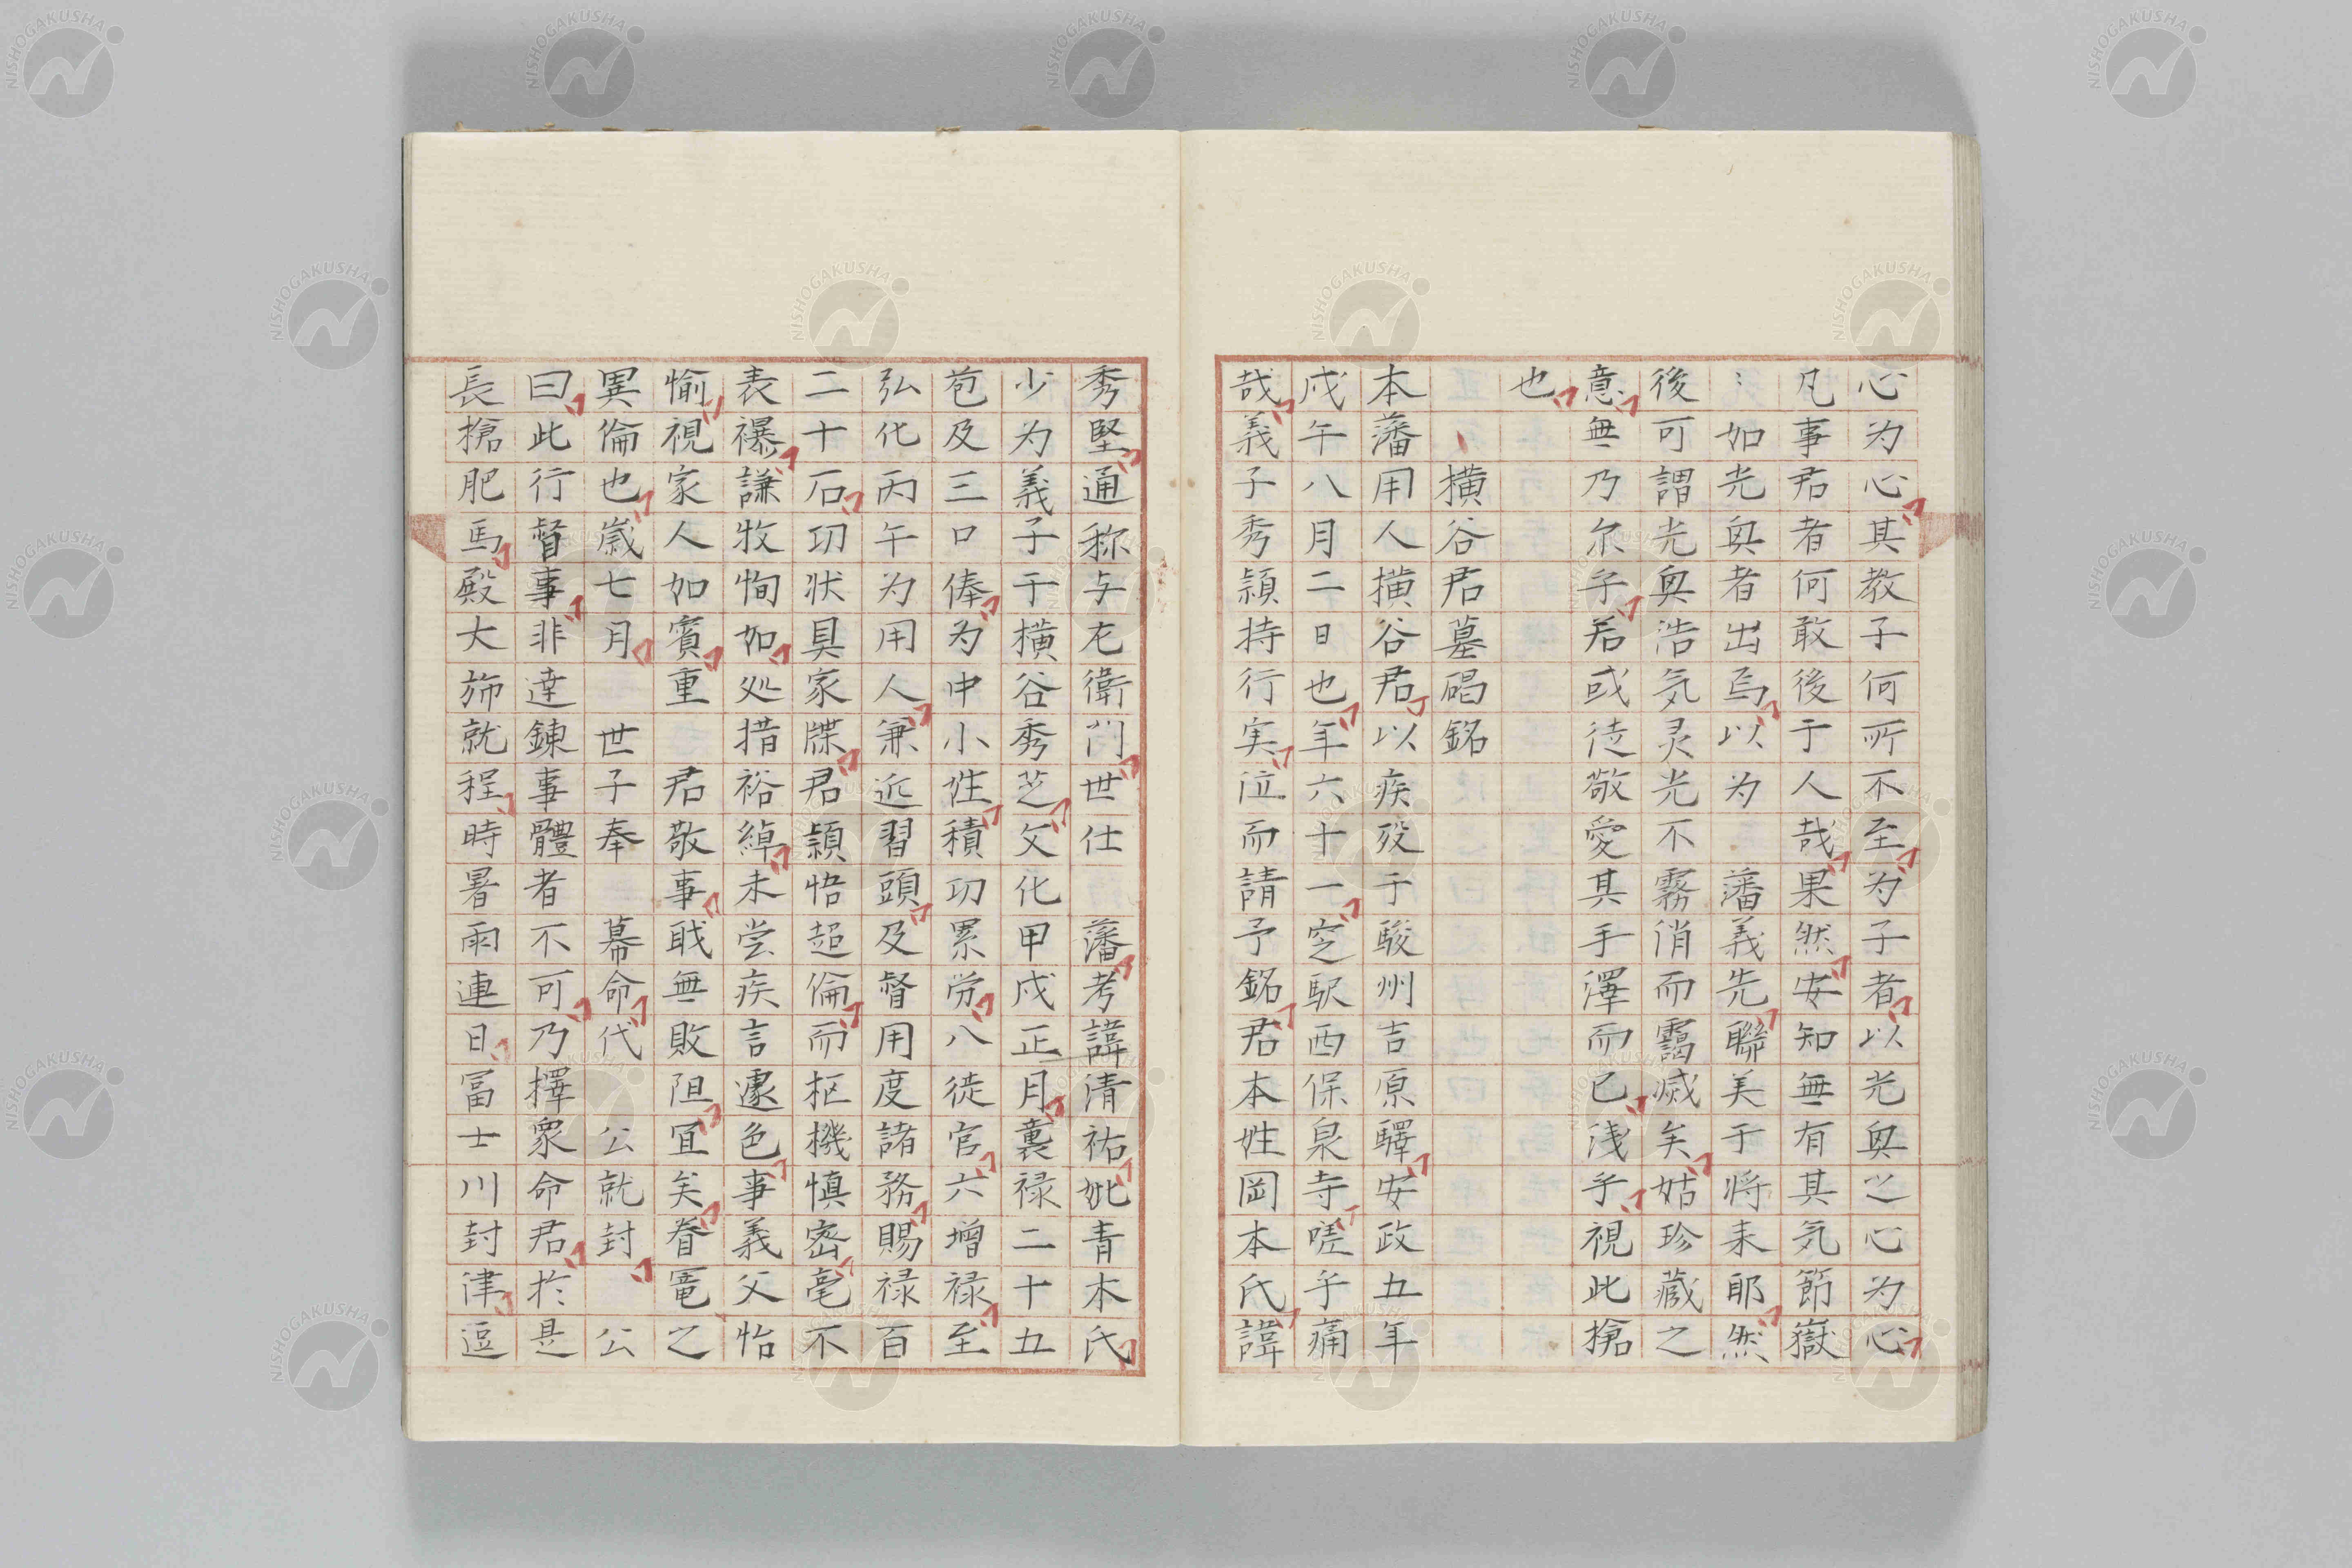 心为心其教子何所不至为子者以光奥之心为心
凡事君者何敢後于人哉果然安知無有其気節嶽
〻如光奥者出焉以为　藩義先聯美于将来耶然
後可謂光奥浩気灵光不霧消而靄滅矣姑珍蔵之
意無乃尔乎若或徒敬愛其手澤而已浅乎視此搶
也
横谷君墓碣銘
本藩用人横谷君以疾歿于駿州吉原驛安政五年
戊午八月二日也年六十一窆駅西保泉寺嗟乎痛
哉義子秀頴持行実泣而請予銘君本姓岡本氏諱
秀堅通称与左衛門世仕　藩考諱清祐妣青木氏
少为義子于横谷秀芝文化甲戌正月襲禄二十五
苞及三口俸为中小性積功累労八徒官六增禄至
弘化丙午为用人兼近習頭及督用度諸務賜禄百
二十石功状具家牒君頴悟超倫而枢機慎密毫不
表襮謙牧恂如処措裕綽未尝疾言遽色事義父怡
愉視家人如賓重　君敬事戢無敗阻宜矣眷寵之
異倫也歳七月　世子奉　幕命代　公就封　公
曰此行督事非達錬事體者不可乃擇衆命君於是
長搶肥馬殿大斾就程時暑雨連日冨士川封津逗